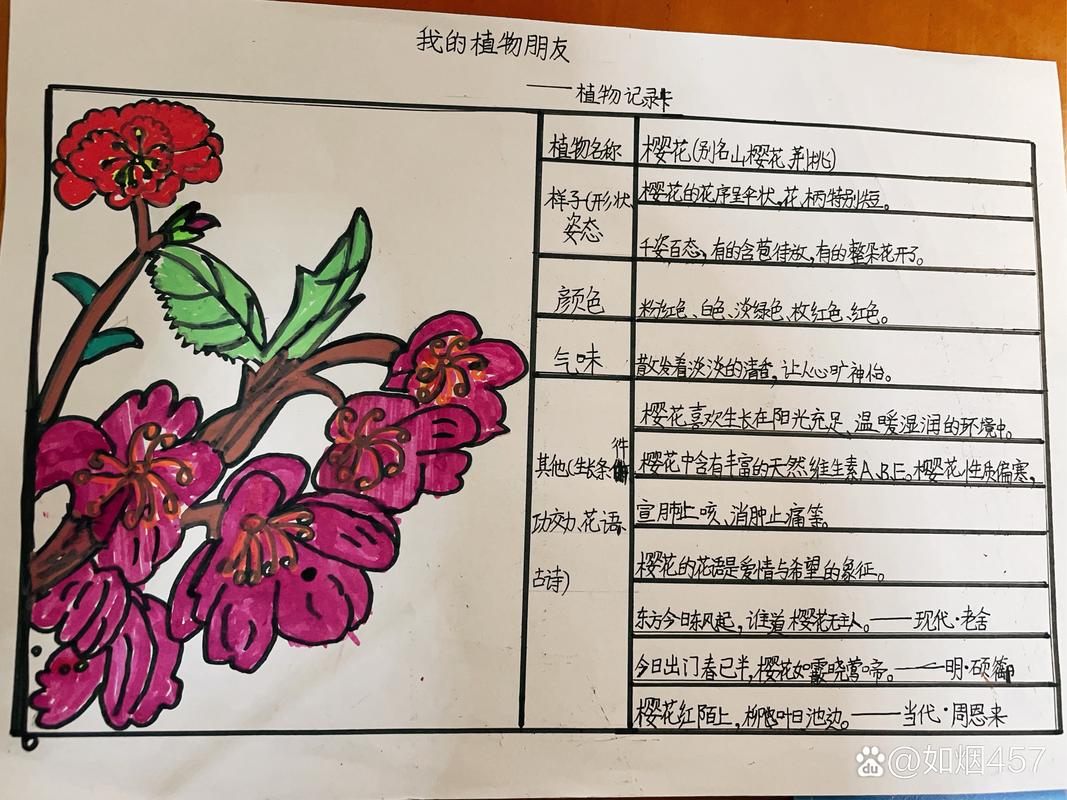 我的植物朋友
——植物记录卡
植物名称
樱花(别名山樱花、荆桃)
样子(形状、
姿态
樱花的花序呈伞状,花柄特别短。
千姿百态,有的含苞待放,有的整朵花开了。
颜色
粉红色、白色、淡绿色、枚红色、红色。
气味
散发着淡淡的清香,让人心旷神怡。
其他(生长条件
功效、花语、
古诗)
樱花喜欢生长在阳光充足、温暖湿润的环境中。
樱花中含有丰富的天然维生素A.B.E。樱花性质偏寒,
宣肺止咳、消肿止痛等。
樱花的花语是爱情与希望的象征。
东方今日东风起,谁道樱花无主人。——现代·老舍
今日出门春已半,樱花如霰晓莺啼。——明·硕
樱花红陌上,柳叶日池边。——当代·周恩来
@如烟457